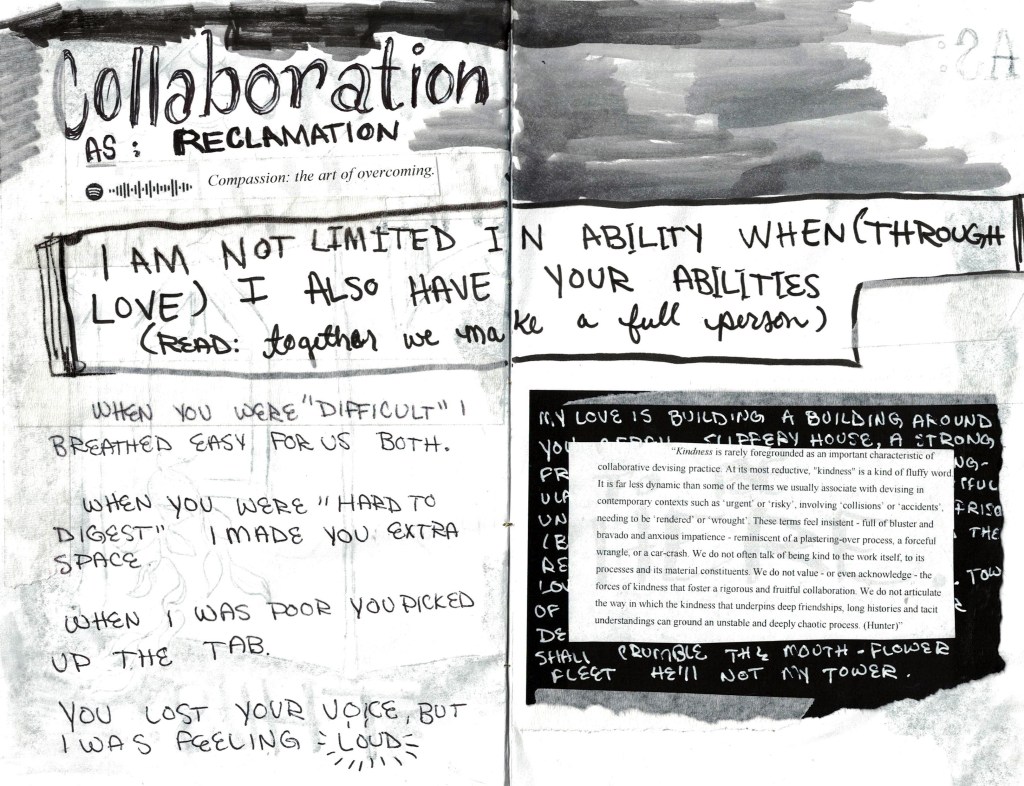 Collaboration
AS: RECLAMATION
Compassion: the art of overcoming.
I AM NOT LIMITED IN ABILITY WHEN (THROUGH
LOVE) I ALSO HAVE YOUR ABILITIES
(READ: together we make a full person)
WHEN YOU WERE "DIFFICULT" I
BREATHED EASY FOR US BOTH.
WHEN YOU WERE "HARD TO
DIGEST" I MADE YOU EXTRA
SPACE.
WHEN I WAS POOR YOU PICKED
UP THE TAB.
YOU LOST YOUR VOICE, BUT
I WAS FEELING LOUD
MY LOVE IS BUILDING A BUILDING AROUND
YOU SLIPPERY HOUSE, A STRONG
"Kindness is rarely foregrounded as an important characteristic of
collaborative devising practice. At its most reductive, "kindness" is a kind of fluffy word
It is far less dynamic than some of the terms we usually associate with devising in
contemporary contexts such as 'urgent' or 'risky', involving 'collisions' or 'accidents',
needing to be 'rendered' or 'wrought'. These terms feel insistent - full of bluster and
bravado and anxious impatience - reminiscent of a plastering-over process, a forceful
wrangle, or a car-crash. We do not often talk of being kind to the work itself, to its
processes and its material constituents. We do not value - or even acknowledge - the
forces of kindness that foster a rigorous and fruitful collaboration. We do not articulate
the way in which the kindness that underpins deep friendships, long histories and tacit
understandings can ground an unstable and deeply chaotic process. (Hunter)"
THE
TOW
OF
DE
SHALL CRUMBLE THE MOUTH-FLOWER
FLEET HE'll NOT MY TOWER.